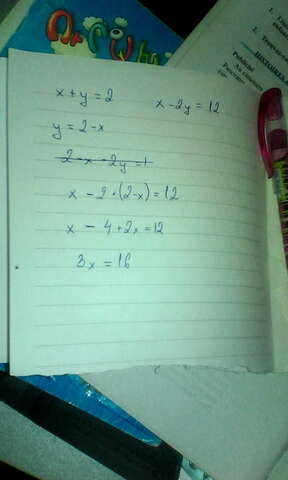 x + y = 2 x - 2y = 12
y = 2 - x
2 - x - 2y = 1
x - 2 · (2 - x) = 12
x - 4 + 2x = 12
3x = 16